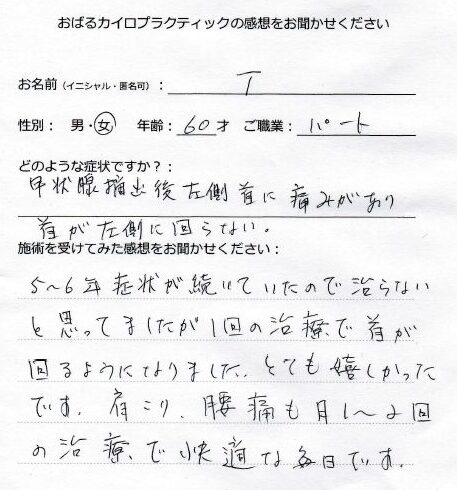 おばるカイロプラクティックの感想をお聞かせください
お名前（イニシャル・匿名可）： T
性別： 男・女 年齢： 60才 ご職業： パート
どのような症状ですか？：
甲状腺摘出後左側首に痛みがあり
首が左側に回らない。
施術を受けてみた感想をお聞かせください：
5〜6年症状が続いていたので治らない
と思ってましたが1回の治療で首が
回るようになりました。とても嬉しかった
です。肩こり、腰痛も月1〜2回
の治療で快適な毎日です。